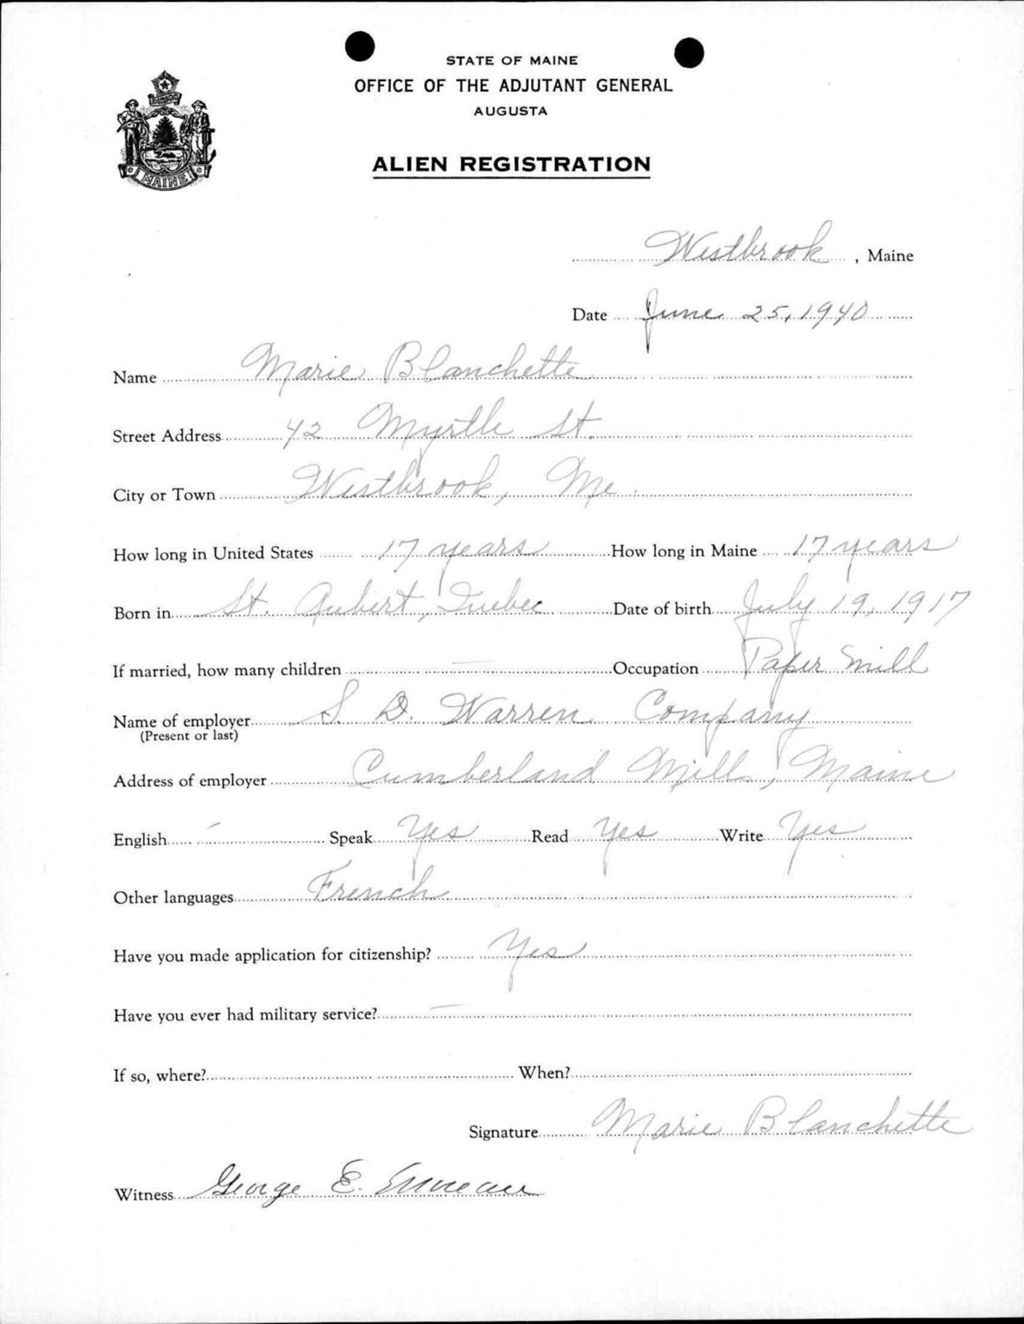 STATE OF MAINE
OFFICE OF THE ADJUTANT GENERAL
AUGUSTA
ALIEN REGISTRATION
MAINE
Westbrook, Maine
Date June 25, 1940
Name Marie Blanchette
Street Address 42 Myrtle St.
City or Town Westbrook, Me.
How long in United States 17 years How long in Maine 17 years
Born in St. Aubert, Quebec Date of birth July 19, 1917
If married, how many children — Occupation Paper mill
Name of employer S. D. Warren Company
(Present or last)
Address of employer Cumberland Mills, Maine
English Speak Yes Read Yes Write Yes
Other languages French
Have you made application for citizenship? Yes
Have you ever had military service? —
If so, where? When?
Signature Marie Blanchette
Witness George E.